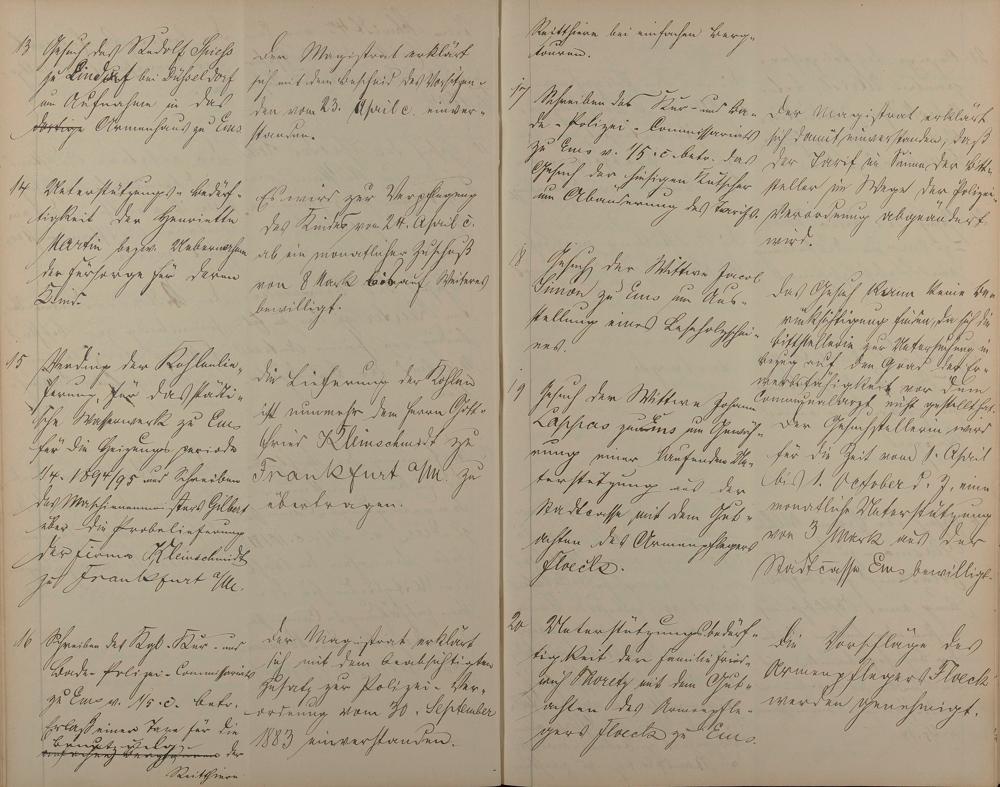 13 Gesuch des Rudolf Spiess
zu Lindorf bei Düsseldorf
um Aufnahme in das
dortige Armenhaus zu Ems
Der Magistrat erklärt
sich mit dem Bescheid des Vorsitzen-
den vom 23. April c. einver-
standen.
14 Unterstützungs-Bedürf-
tigkeit der Henriette
Martin bezw. Uebernahme
der Fürsorge für deren
Kind
Es wird zur Verpflegung
des Kindes vom 24. April c.
ab ein monatlicher Zuschuß
von 8 Mark bis auf Weiteres
bewilligt.
15 Verding der Kohlenlie-
ferung für das städti-
sche Wasserwerk zu Ems
für die Heizungsperiode
1/4. 1894/95 und Schreiben
des Maschienenmeisters Gilbert
über die Probelieferung
der Firma Kleinschmidt
zu Frankfurt a/M.
Die Lieferung der Kohlen
ist nunmehr dem Herrn Gott-
fried Kleinschmidt zu
Frankfurt a/M. zu
übertragen.
16 Schreiben des Kgl. Kur- und
Bade-Polizei-Commissariats
zu Ems v. 1/5. c. betr.
Erlaß einer Taxe für die
einfachen Bergtouren der
Reitthiere
Der Magistrat erklärt
sich mit dem beabsichtigten
Zusatz zur Polizei-Ver-
ordnung vom 30. September
1883 einverstanden.
Reitthiere bei einfachen Berg-
touren.
17 Schreiben des Kur- und Ba-
de-Polizei-Commissariats
zu Ems v. 1/5. c. betr. das
Gesuch der hiesigen Kutscher
um Abänderung des Tarifs
Der Magistrat erklärt
sich damit einverstanden, daß
der Tarif im Sinne der Bitt-
steller im Wege der Polizei-
Verordnung abgeändert
wird.
18 Gesuch der Wittwe Jacob
Simon zu Ems um Aus-
stellung eines Leseholzschei-
nes.
Das Gesuch kann keine Be-
rücksichtigung finden, da sich die
Bittstellerin zur Untersuchung in
Bezug auf den Grad der Er-
werbsfähigkeit vor dem
Communalarzt nicht gestellt hat.
19 Gesuch der Wittwe Johann
Lappas zu Ems um Gewäh-
rung einer laufenden Un-
terstützung aus der
Stadtcasse, mit dem Gut-
achten des Armenpflegers
Floeck.
Der Gesuchstellerin wird
für die Zeit vom 1. April
bis 1. October d. J. eine
monatliche Unterstützung
von 3 Mark aus der
Stadtcasse Ems bewilligt.
20 Unterstützungsbedürf-
tigkeit der Familie Fried-
rich Moretz mit dem Gut-
achten des Armenpfle-
gers Floeck zu Ems.
Die Vorschläge des
Armenpflegers Floeck
werden genehmigt.